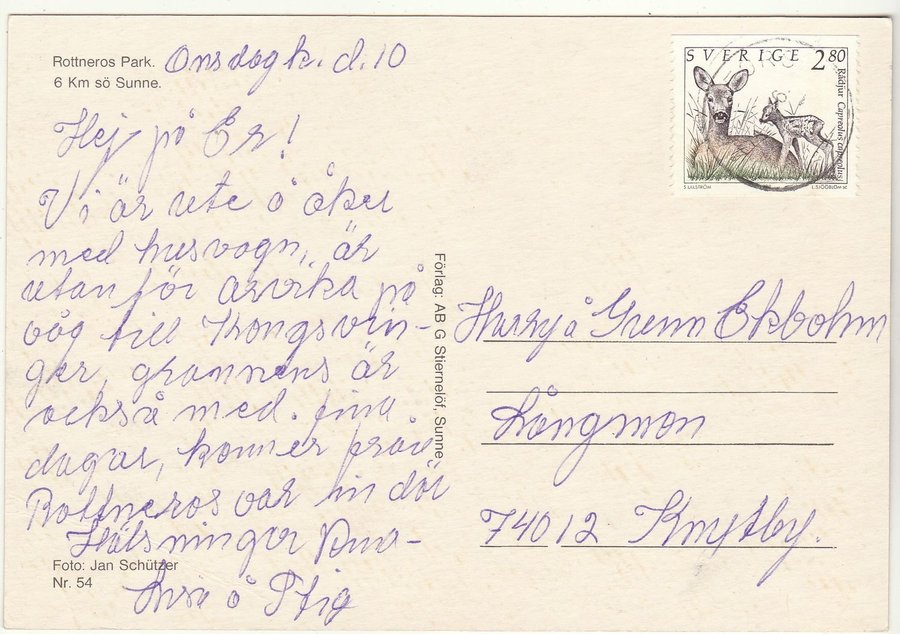 Rottneros Park.
6 Km sö Sunne.
Onsdag k. d. 10
Hej på Er!
Vi är ute å åker
med husvagn, är
utan för arvika på
väg till Kongsvin-
ger, grannens är
också med. fina
dagar, kommer från
Rottneros var in där
Hälsningar
Lisa å Stig
Foto: Jan Schützer
Nr. 54
Förlag: AB G Stiernelöf, Sunne
SVERIGE 2 80
Rådjur Capreolus capreolus
L. SJÖÖBLOM SC
Harry å Ekbohm
Långmon
74012 Knutby.